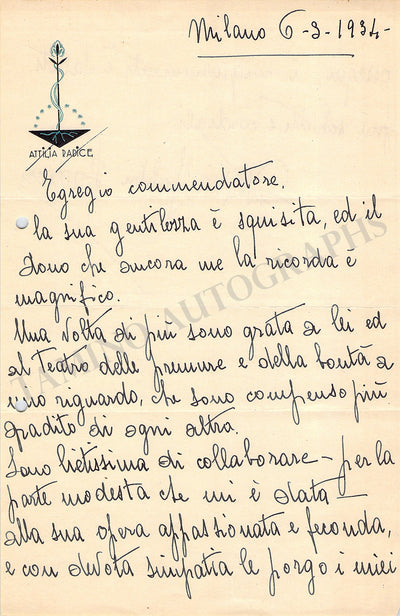 Milano 6-3-1934-
ATTILIA RADICE
Egregio commendatore,
la sua gentilezza è squisita, ed il
dono che ancora me la ricorda è
magnifico.
Una volta di più sono grata a lei ed
al Teatro delle premure e della bontà a
mio riguardo, che sono compenso più
gradito di ogni altro.
Sono lietissima di collaborare - per la
parte modesta che mi è data -
alla sua opera appassionata e feconda,
e con devota simpatia le porgo i miei
TAMINO AUTOGRAPHS